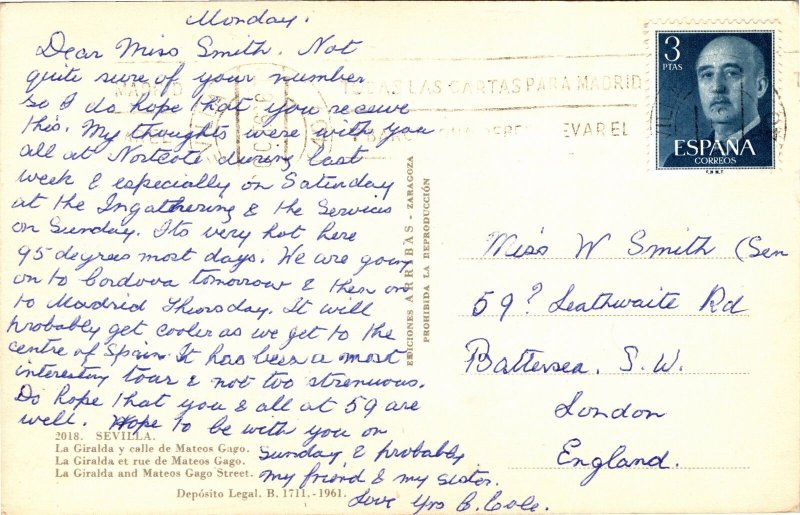 Monday.
Dear Miss Smith. Not
quite sure of your number
so I do hope that you receive
this. My thoughts were with you
all at Nortcote during last
week & especially on Saturday
at the Ingathering & the Services
on Sunday. Its very hot here
95 degrees most days. We are going
on to Cordova tomorrow & then on
to Madrid Thursday. It will
probably get cooler as we get to the
centre of Spain. It has been a most
interesting tour & not too strenuous.
Do hope that you & all at 59 are
well. Hope to be with you on
Sunday & probably
my friend & my sister.
Love Yrs B. Cole.
2018. SEVILLA.
La Giralda y calle de Mateos Gago.
La Giralda et rue de Mateos Gago.
La Giralda and Mateos Gago Street.
Depósito Legal. B. 1711.-1961.
EDICIONES ARRIBAS - ZARAGOZA
PROHIBIDA LA REPRODUCCIÓN
MADRID
TODAS LAS CARTAS PARA MADRID
3
PTAS
ESPAÑA
CORREOS
F.N.M.T.
Miss W Smith (Sen
59? Leathwaite Rd
Battersea. S.W.
London
England.